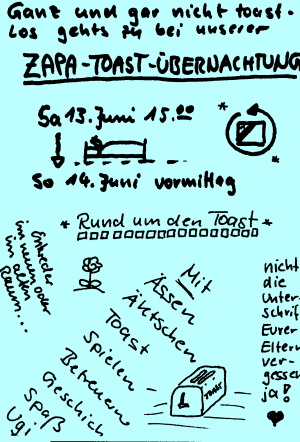 Ganz und gar nicht toast-
los gehts zu bei unserer
ZAPA-TOAST-ÜBERNACHTUNG
Sa 13. Juni 15.00
So 14. Juni vormittag
* Rund um den Toast *
Entweder
im neuen oder
im alten
Raum...
Mit
Ässen
Äktschen
Toast
Spielen-
Betreuern
Geschich
Spaß
Ugi
TOAST
nicht
die
Unter-
schrif
Eurer
Eltern
ver-
gessen
ja!